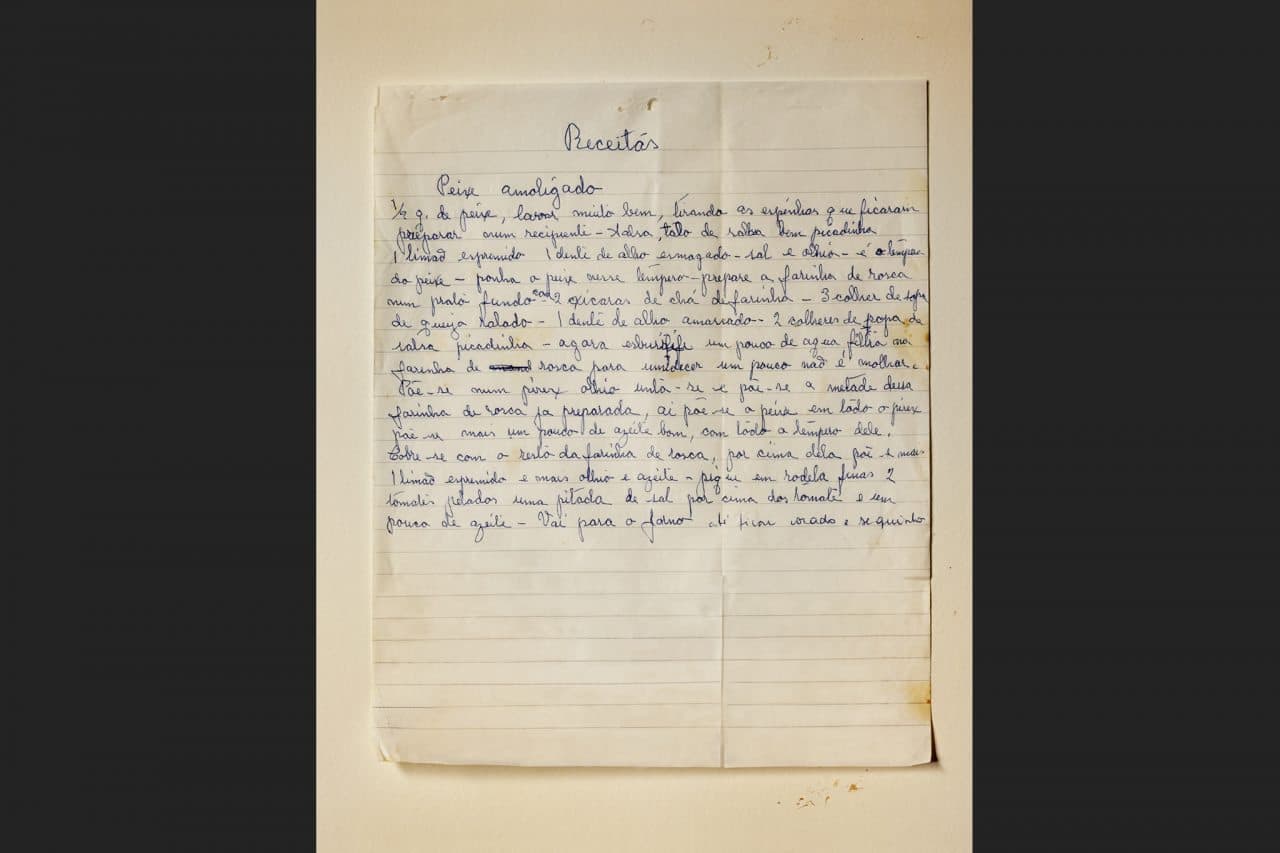 Receitas
Peixe amoligado
1/2 q. de peixe, lavar muito bem, tirando as espinhas que ficaram
preparar num recipiente - salsa, talo de salsa bem picadinha
1 limão espremido 1 dente de alho esmagado - sal e olhio - é o tempero
do peixe - ponha o peixe nesse tempero - prepare a farinha de rosca
num prato fundo com 2 xicaras de chá de farinha - 3 colher de sopa
de queijo ralado - 1 dente de alho amassado - 2 colheres de popa de
salsa picadinha - agora um pouco de agua filtra na
farinha de rosca para umidecer um pouco não é molhar.
Põe-se num pirex olhio unta-se e põe-se a metade dessa
farinha de rosca ja preparada, ai põe-se o peixe em todo o pirex
põe-se mais um pouco de azeite bom, com todo o tempero dele.
Cobre-se com o resto da farinha de rosca, por cima dela põe-se mais
1 limão espremido e mais olhio e azeite - pique em rodela finas 2
tomates pelados uma pitada de sal por cima dos tomate e um
pouco de azeite - Vai para o forno até ficar corado e sequinho